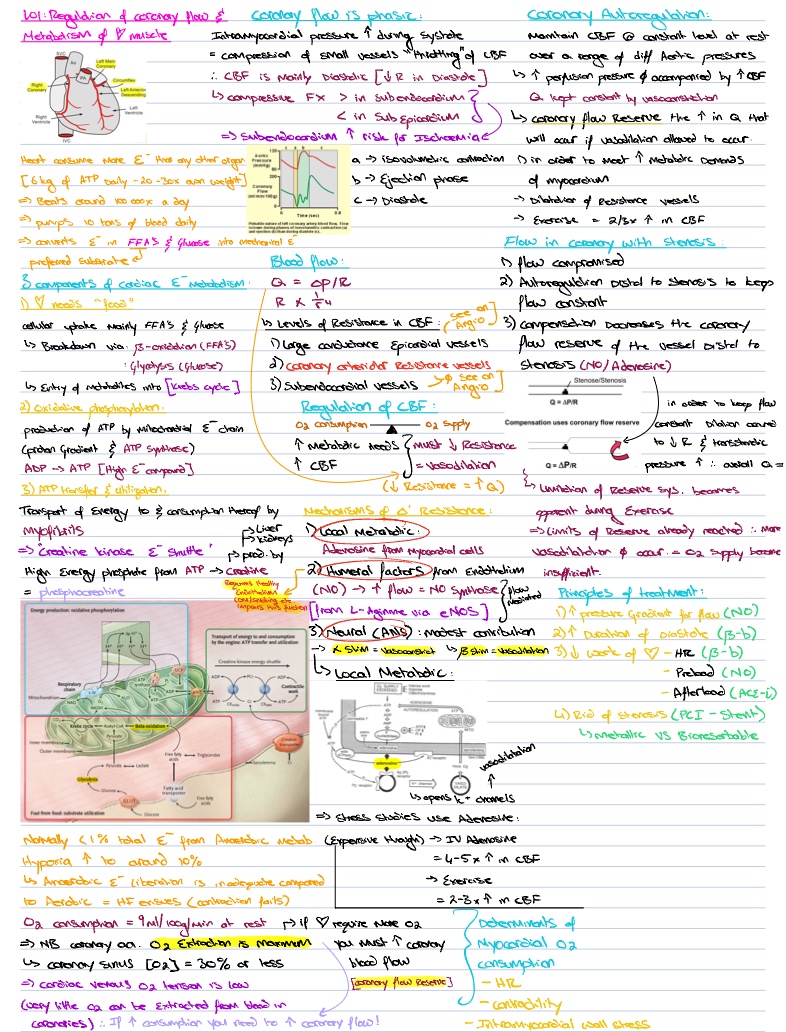 LO1: Regulation of coronary flow &
Metabolism of ♡ muscle
SVC
Ao
PA
Left Main
Coronary
Circumflex
Left Anterior
Descending
Right
Coronary
Left
Ventricle
Right
Ventricle
IVC
Heart consume more E⁻ than any other organ
[6kg of ATP Daily - 20-30x own weight]
⇒ Beats around 100 000x a day
⇒ pumps 10 tons of blood daily
⇒ converts E⁻ in FFA's & Glucose into mechanical E⁻
preferred substrate
3 components of cardiac E⁻ metabolism:
1) ♡ needs "food"
cellular uptake mainly FFA's & Glucose
↳ Breakdown via: β-oxidation (FFA's)
: Glycolysis (Glucose)
↳ Entry of metabolites into [Krebs cycle]
2) Oxidative phosphorylation:
production of ATP by Mitochondrial E⁻ chain
(proton Gradient & ATP synthase)
ADP → ATP [High E⁻ compound]
3) ATP transfer & utilization:
Transport of Energy to & consumption thereof by
myofibrils
⇒ "Creatine kinase E⁻ Shuttle"
→ Liver
→ kidneys
→ prod. by
High Energy phosphate from ATP → Creatine
= phosphocreatine
Coronary flow is phasic:
Intramyocardial pressure ↑ during systole
= compression of small vessels "throttling" of CBF
∴ CBF is mainly Diastolic [↓R in Diastole]
↳ compressive FX > in subendocardium
< in Sub Epicardium
⇒ subendocardium ↑ risk for Ischaemia
Aortic
Pressure
(mmHg)
120
80
Coronary
Flow
(ml/min/100g)
100
0
Time (sec)
0.8
a b c
Pulsatile nature of left coronary artery blood flow. Flow
is lower during phases of isovolumetric contraction (a)
and ejection (b) than during diastole (c).
a → isovolumetric contraction
b → Ejection phase
c → Diastole
Blood flow:
Q = ΔP/R
R ∝ 1/r4
↳ Levels of Resistance in CBF:
see on
Angio
1) large conductance Epicardial vessels
2) coronary arteriolar Resistance vessels
3) Subendocardial vessels
→ ∅ see on
Angio
Regulation of CBF:
O2 consumption
O2 supply
↑ Metabolic needs
↑ CBF
must ↓ Resistance
= vasodilation
(↓ Resistance = ↑ Q)
Mechanisms of Δ' Resistance:
1) Local Metabolic:
Adenosine from Myocardial cells
2) Humeral factors from Endothelium
Requires Healthy
Endothelium
(NO) → ↑ flow = NO synthase
flow
mediated
[from L-Arginine via eNOS]
3) Neural (ANS): modest contribution
→ α Stim = vasoconstrict
↳ β Stim = vasodilation
↳ Local Metabolic:
adenosine
vasodilatation
↳ opens K+ channels
⇒ Stress studies use Adenosine:
(Expensive though) → IV Adenosine
= 4-5x ↑ in CBF
→ Exercise
= 2-3x ↑ in CBF
Coronary Autoregulation:
Maintain CBF @ constant level at rest
over a range of diff Aortic pressures
↳ ↑ perfusion pressure ∅ accompanied by ↑ CBF
Q kept constant by vasoconstriction
↳ coronary flow Reserve the ↑ in Q that
will occur if vasodilation allowed to occur.
1) in order to meet ↑ metabolic Demands
of myocardium
→ Dilatation of Resistance vessels
→ Exercise = 2/3x ↑ in CBF
Flow in coronary with stenosis:
1) flow compromised
2) Autoregulation Distal to stenosis to keep
flow constant
3) compensation Decreases the coronary
flow reserve of the vessel Distal to
stenosis (NO/Adenosine)
Stenose/Stenosis
Q = ΔP/R
Compensation uses coronary flow reserve
Q = ΔP/R
in order to keep flow
constant Dilation occured
to ↓ R & transstenotic
pressure ↑ ∴ overall Q =
↳ Limitation of Reserve sys. becomes
apparent during Exercise
⇒ Limits of Reserve already reached ∴ more
vasodilatation ∅ occur. = O2 supply become
insufficient.
Principles of treatment:
1) ↑ pressure Gradient for flow (NO)
2) ↑ Duration of Diastole (β-b)
3) ↓ work of ♡ - HR (β-b)
- Preload (NO)
- Afterload (ACE-i)
4) Rid of stenosis (PCI - Stent)
↳ metallic VS Bioresorbable
Energy production: oxidative phosphorylation
Respiratory
chain
Mitochondrion
Transport of energy to and consumption
by the engine: ATP transfer and utilization
Creatine kinase energy shuttle
ADP
ATP
Pi
Contractile
work
Krebs cycle
Acetyl-CoA
Beta-oxidation
Inner membrane
Outer membrane
Pyruvate
Lactate
Free fatty
acids
Triglycerides
Sarcolemma
Glycolysis
Glucose
GLUT
Glucose
Fatty acid
transporter
Free fatty
acids
Fuel from food: substrate utilization
Normally <1% total E⁻ from Anaerobic metab
Hypoxia ↑ to around 10%
↳ Anaerobic E⁻ liberation is inadequate compared
to Aerobic = HF ensues (contraction fails)
O2 consumption = 9ml/100g/min at rest
⇒ NB coronary aa. O2 Extraction is maximum
↳ coronary sinus [O2] = 30% or less
⇒ cardiac venous O2 tension is low
(very little O2 can be Extracted from blood in
coronaries) ∴ If ↑ consumption you need to ↑ coronary flow!
→ if ♡ require more O2
you must ↑ coronary
blood flow
[coronary flow Reserve]
Determinants of
Myocardial O2
consumption
- HR
- contractility
- Intramyocardial wall stress